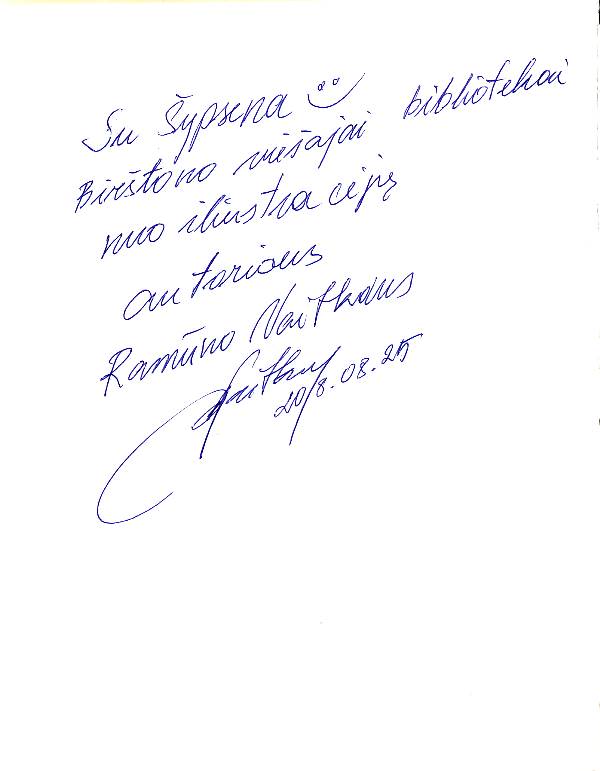 Su Šypsena
Birštono viešajai bibliotekai
nuo iliustracijų
autoriaus
Ramūno Vaitkaus
2018.08.25